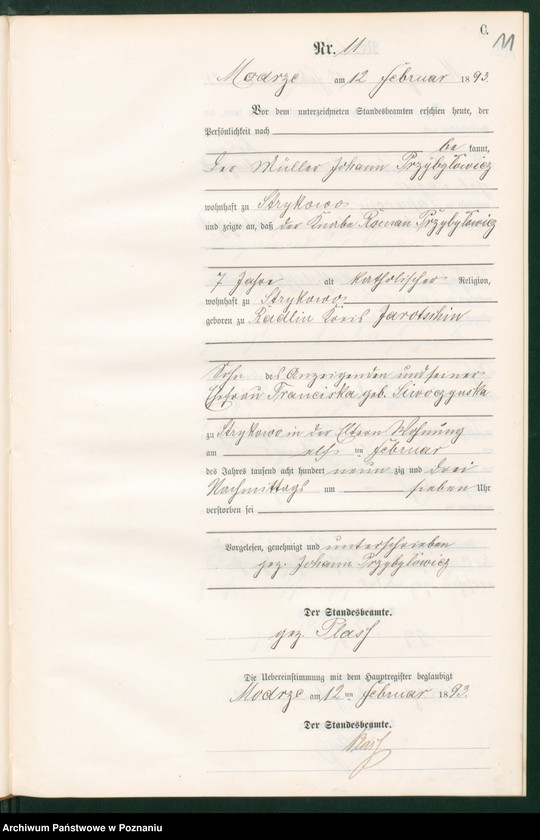 C.
11
Nr. 11
Modrze am 12 Februar 1893.
Vor dem unterzeichneten Standesbeamten erschien heute, der
Persönlichkeit nach
bekannt,
der Müller Johann Przybyłowicz
wohnhaft zu Strykowo
und zeigte an, daß der Knabe Roman Przybyłowicz
7 Jahre alt katholischer Religion,
wohnhaft zu Strykowo
geboren zu Radlin Kreis Jarotschin
Sohn des Anzeigenden und seiner
Ehefrau Franciska geb. Siwoczynska
zu Strykowo in der Eltern Wohnung
am elf ten Februar
des Jahres tausend acht hundert neunzig und drei
Nachmittags um sieben Uhr
verstorben sei
Vorgelesen, genehmigt und unterschrieben
gez. Johann Przybyłowicz
Der Standesbeamte.
gez.
Die Uebereinstimmung mit dem Hauptregister beglaubigt
Modrze am 12 ten Februar 1893.
Der Standesbeamte.
Archiwum Państwowe w Poznaniu